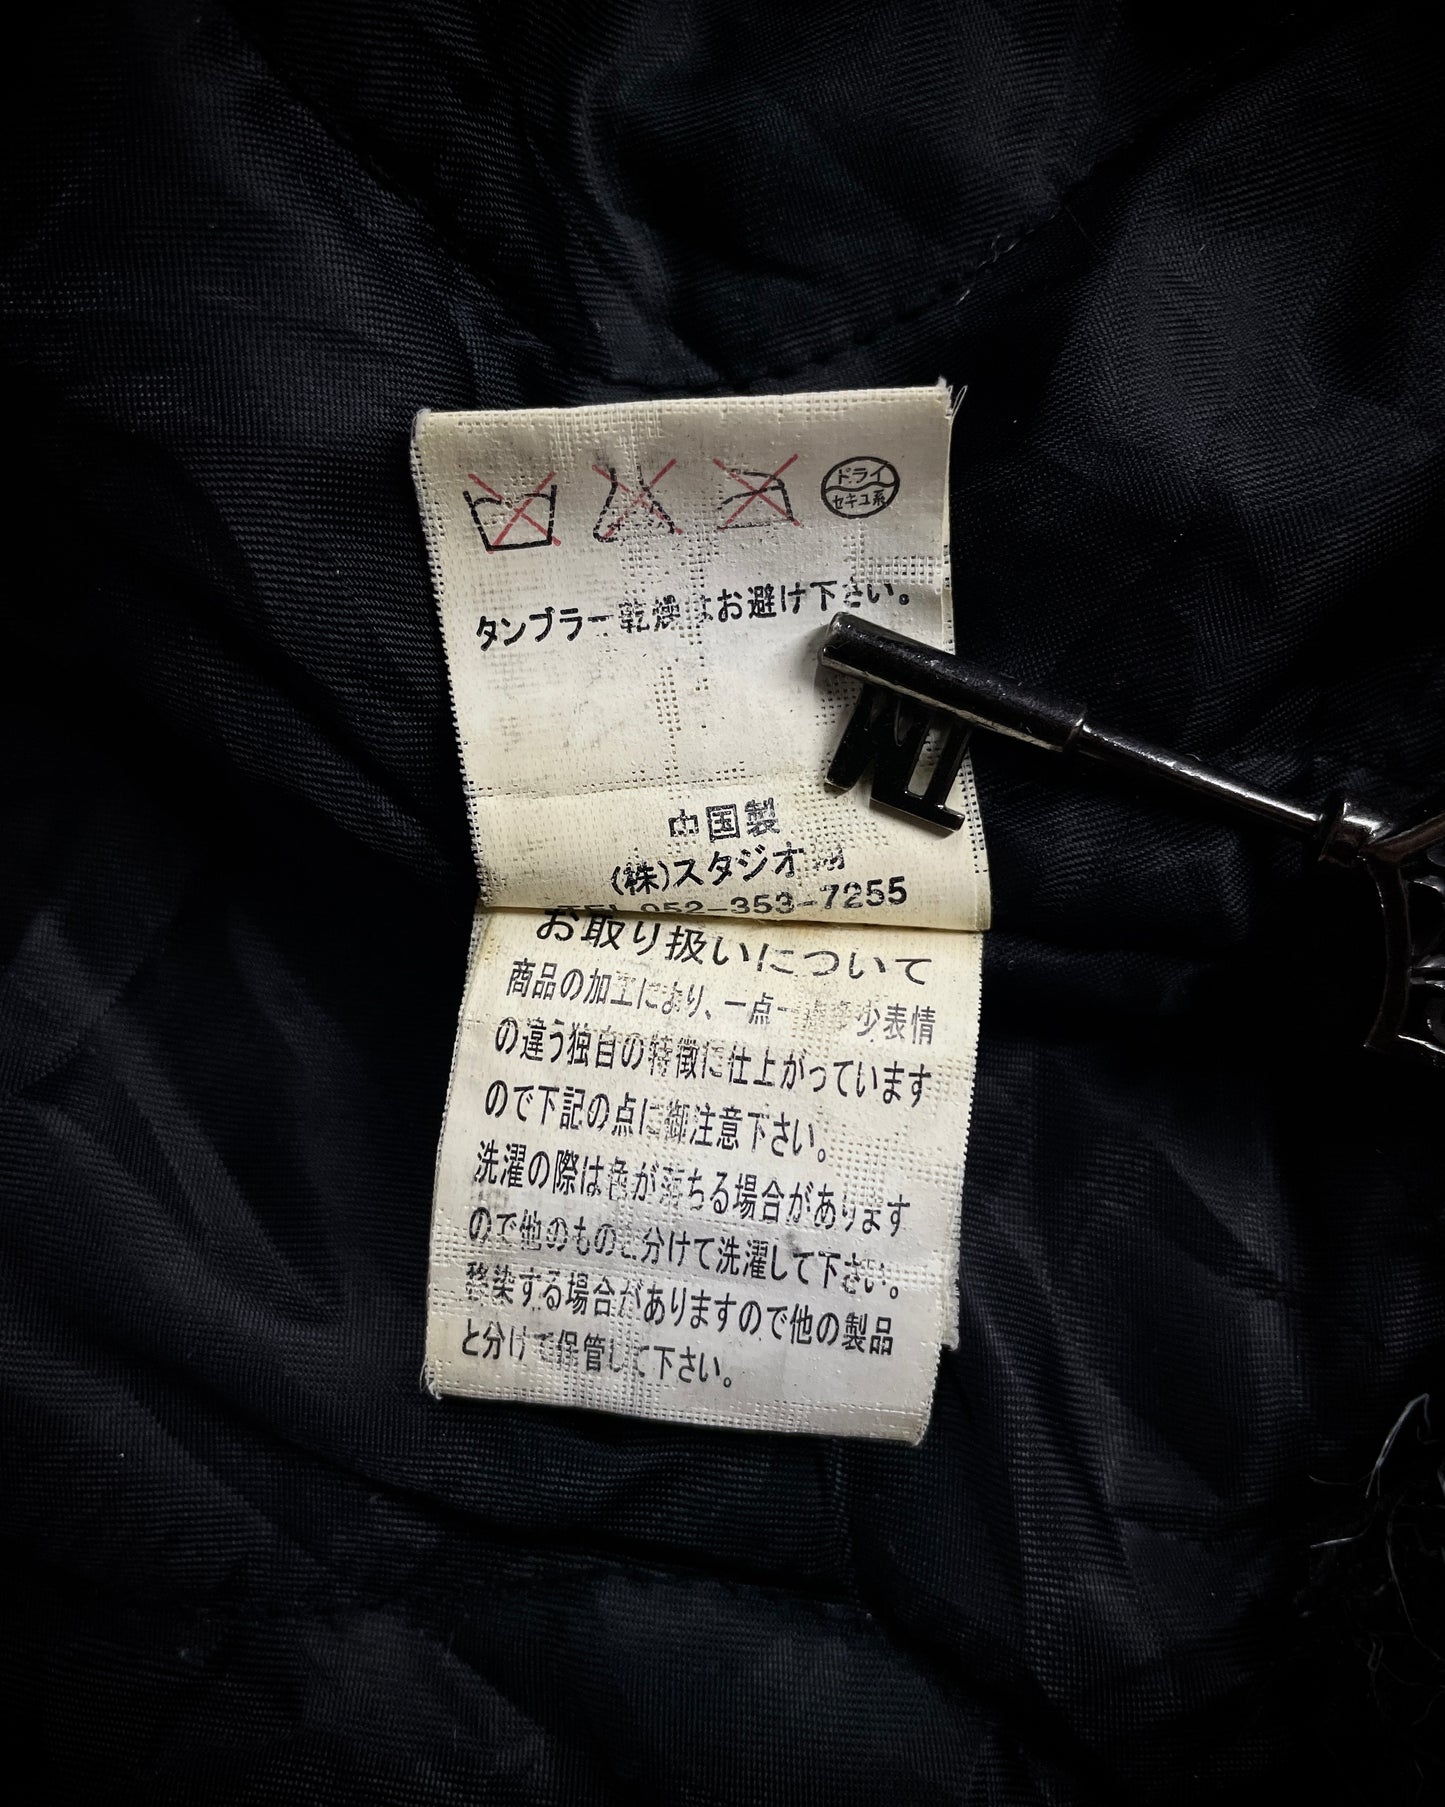 ドライ
セキユ系
タンブラー乾燥はお避け下さい。
中国製
(株)スタジオ
TEL 052-353-7255
お取り扱いについて
商品の加工により、一点一点多少表情
の違う独自の特徴に仕上がっています
ので下記の点に御注意下さい。
洗濯の際は色が落ちる場合があります
ので他のものと分けて洗濯して下さい。
移染する場合がありますので他の製品
と分けて保管して下さい。